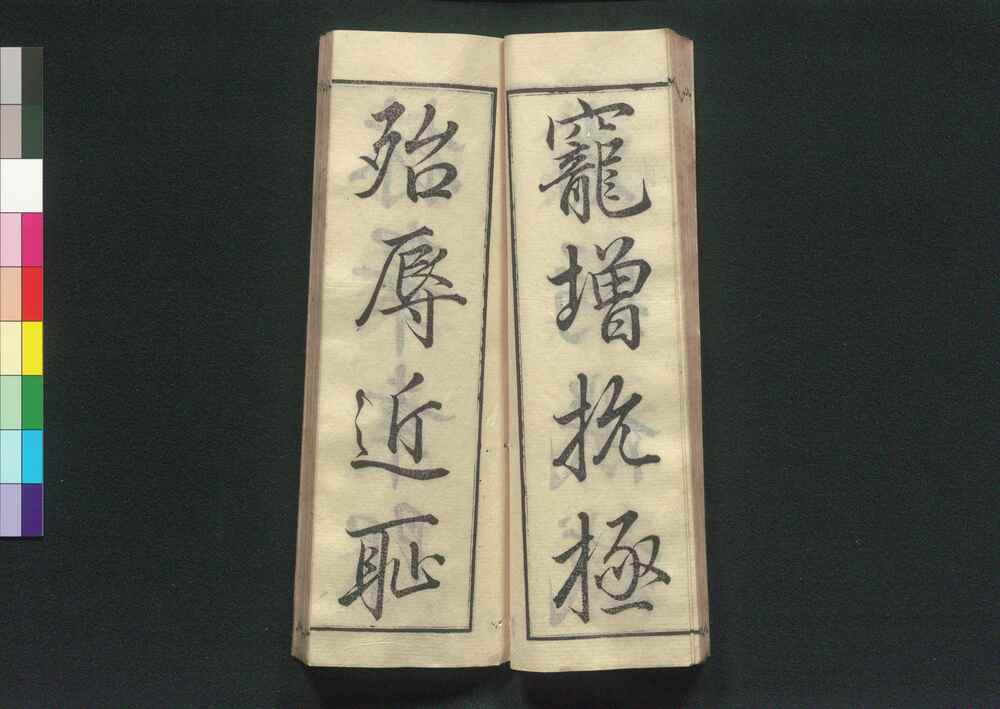 寵增抗極
殆辱近恥